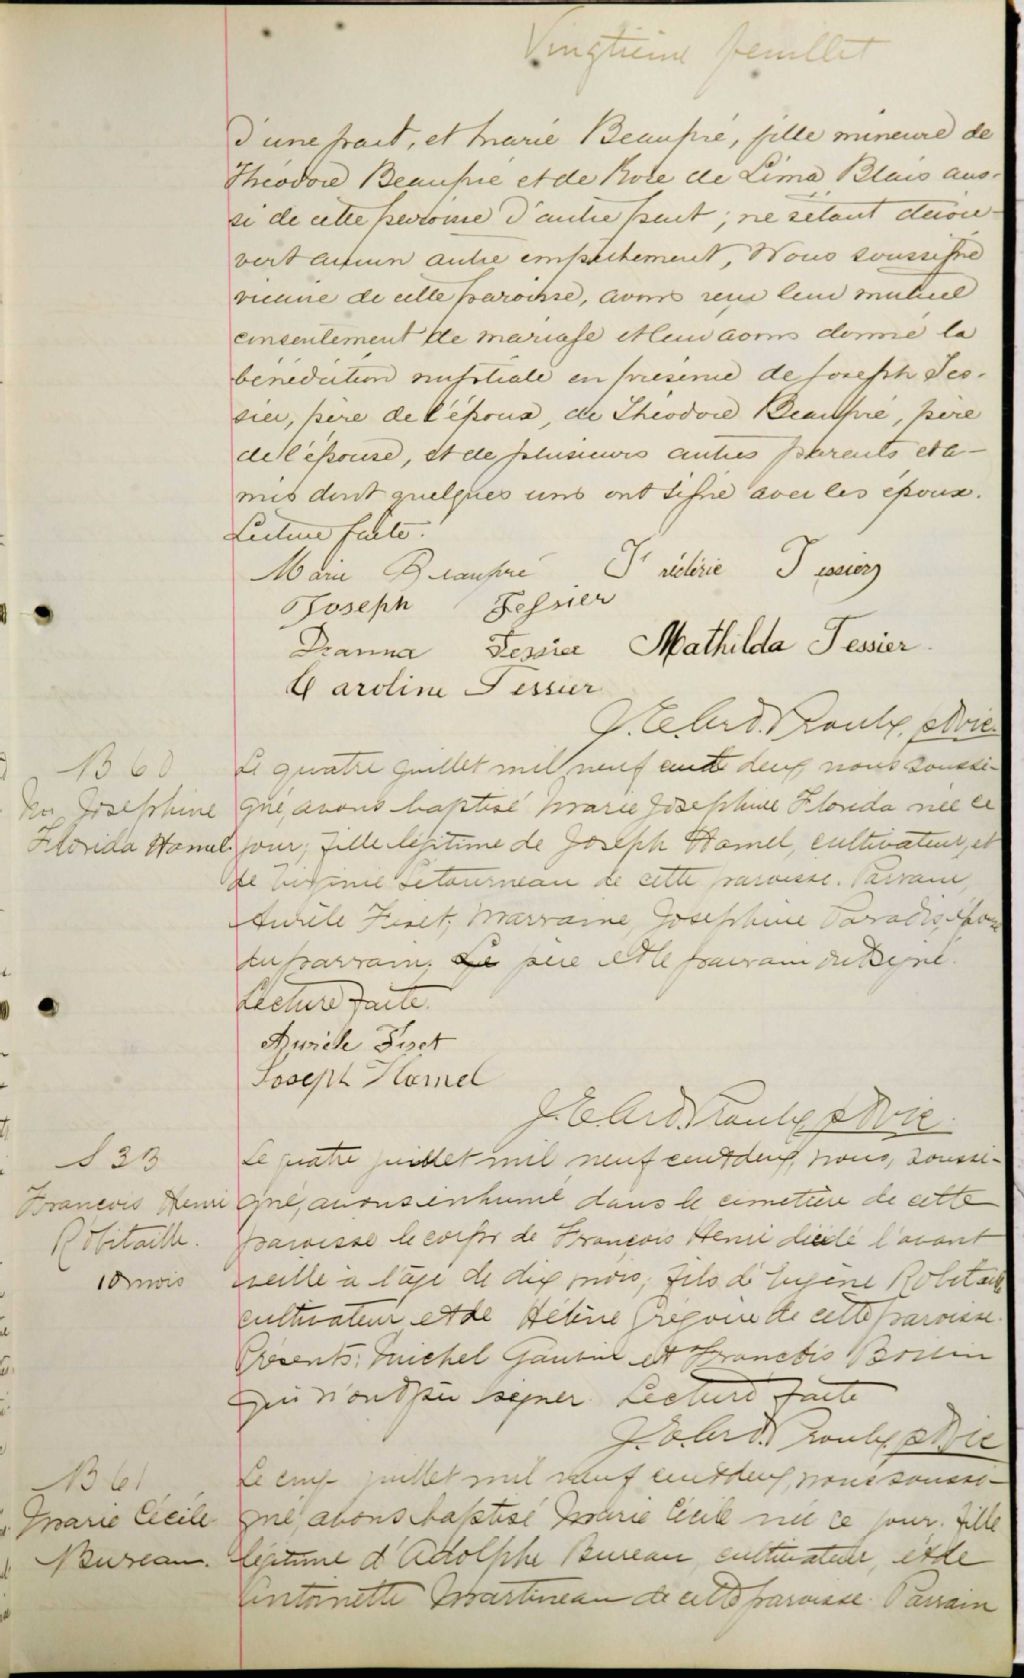 Vingtième feuillet
d'une part, et Marie Beaupré, fille mineure de
Théodore Beaupré et de Rose de Lima Blais aus-
si de cette paroisse d'autre part; ne s'étant décou-
vert aucun autre empêchement, Nous soussigné
vicaire de cette paroisse, avons reçu leur mutuel
consentement de mariage et leur avons donné la
bénédiction nuptiale en présence de Joseph Tes-
sier, père de l'époux, de Théodore Beaupré, père
de l'épouse, et de plusieurs autres parents et a-
mis dont quelques uns ont signé avec les époux.
Lecture faite.
Marie Beaupré Frédéric Tessier
Joseph Tessier
Tessier Mathilda Tessier
Caroline Tessier
J. E. Proulx, ptre vic.
B 60
Josephine
Florida Hamel.
Le quatre juillet mil neuf cent deux nous soussi-
gné, avons baptisé Marie Josephine Florida née ce
jour, fille légitime de Joseph Hamel, cultivateur, et
de Virginie Letourneau de cette paroisse. Parrain,
Aurèle Fiset; Marraine, Josephine Paradis, épouse
du parrain. Le père et le parrain ont signé.
Lecture faite.
Aurèle Fiset
Joseph Hamel
J. E. Proulx ptre vic.
S 33
François Henri
Robitaille.
10 mois
Le quatre juillet mil neuf cent deux, nous, soussi-
gné, avons inhumé dans le cimetière de cette
paroisse le corps de François Henri décédé l'avant
veille à l'âge de dix mois, fils d'Eugène Robitaille
cultivateur et de Hélène Grégoire de cette paroisse.
Présents: Michel et François
qui n'ont pu signer. Lecture faite
J. E. Proulx ptre vic
B 61
Marie Cécile
Bureau.
Le cinq juillet mil neuf cent deux, nous soussi-
gné, avons baptisé Marie Cécile née ce jour. fille
légitime d'Adolphe Bureau, cultivateur, et de
Antoinette Martineau de cette paroisse. Parrain